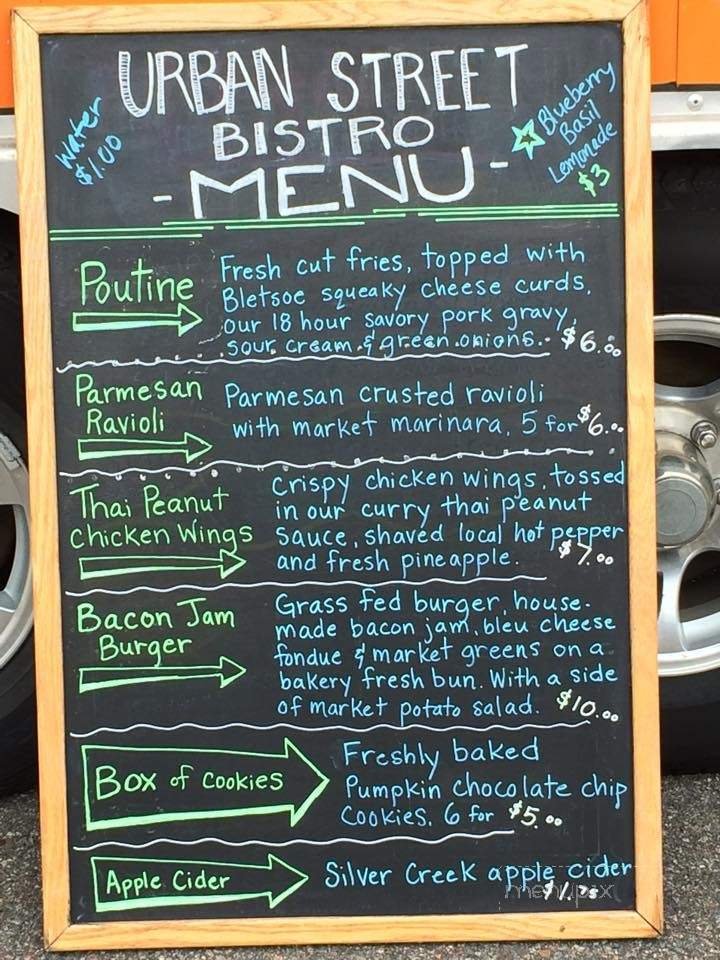 URBAN STREET
BISTRO
- MENU -
Water
$1.00
Blueberry
Basil
Lemonade
$3
Poutine
Fresh cut fries, topped with
Bletsoe squeaky cheese curds,
our 18 hour savory pork gravy,
sour cream & green onions. $6.00
Parmesan
Ravioli
Parmesan crusted ravioli
with market marinara, 5 for $6.00
Thai Peanut
Chicken Wings
Crispy chicken wings, tossed
in our curry thai peanut
sauce, shaved local hot pepper
and fresh pineapple.
$7.00
Bacon Jam
Burger
Grass fed burger, house-
made bacon jam, bleu cheese
fondue & market greens on a
bakery fresh bun. With a side
of market potato salad. $10.00
Box of Cookies
Freshly baked
Pumpkin chocolate chip
cookies. 6 for $5.00
Apple Cider
Silver Creek apple cider
menupix